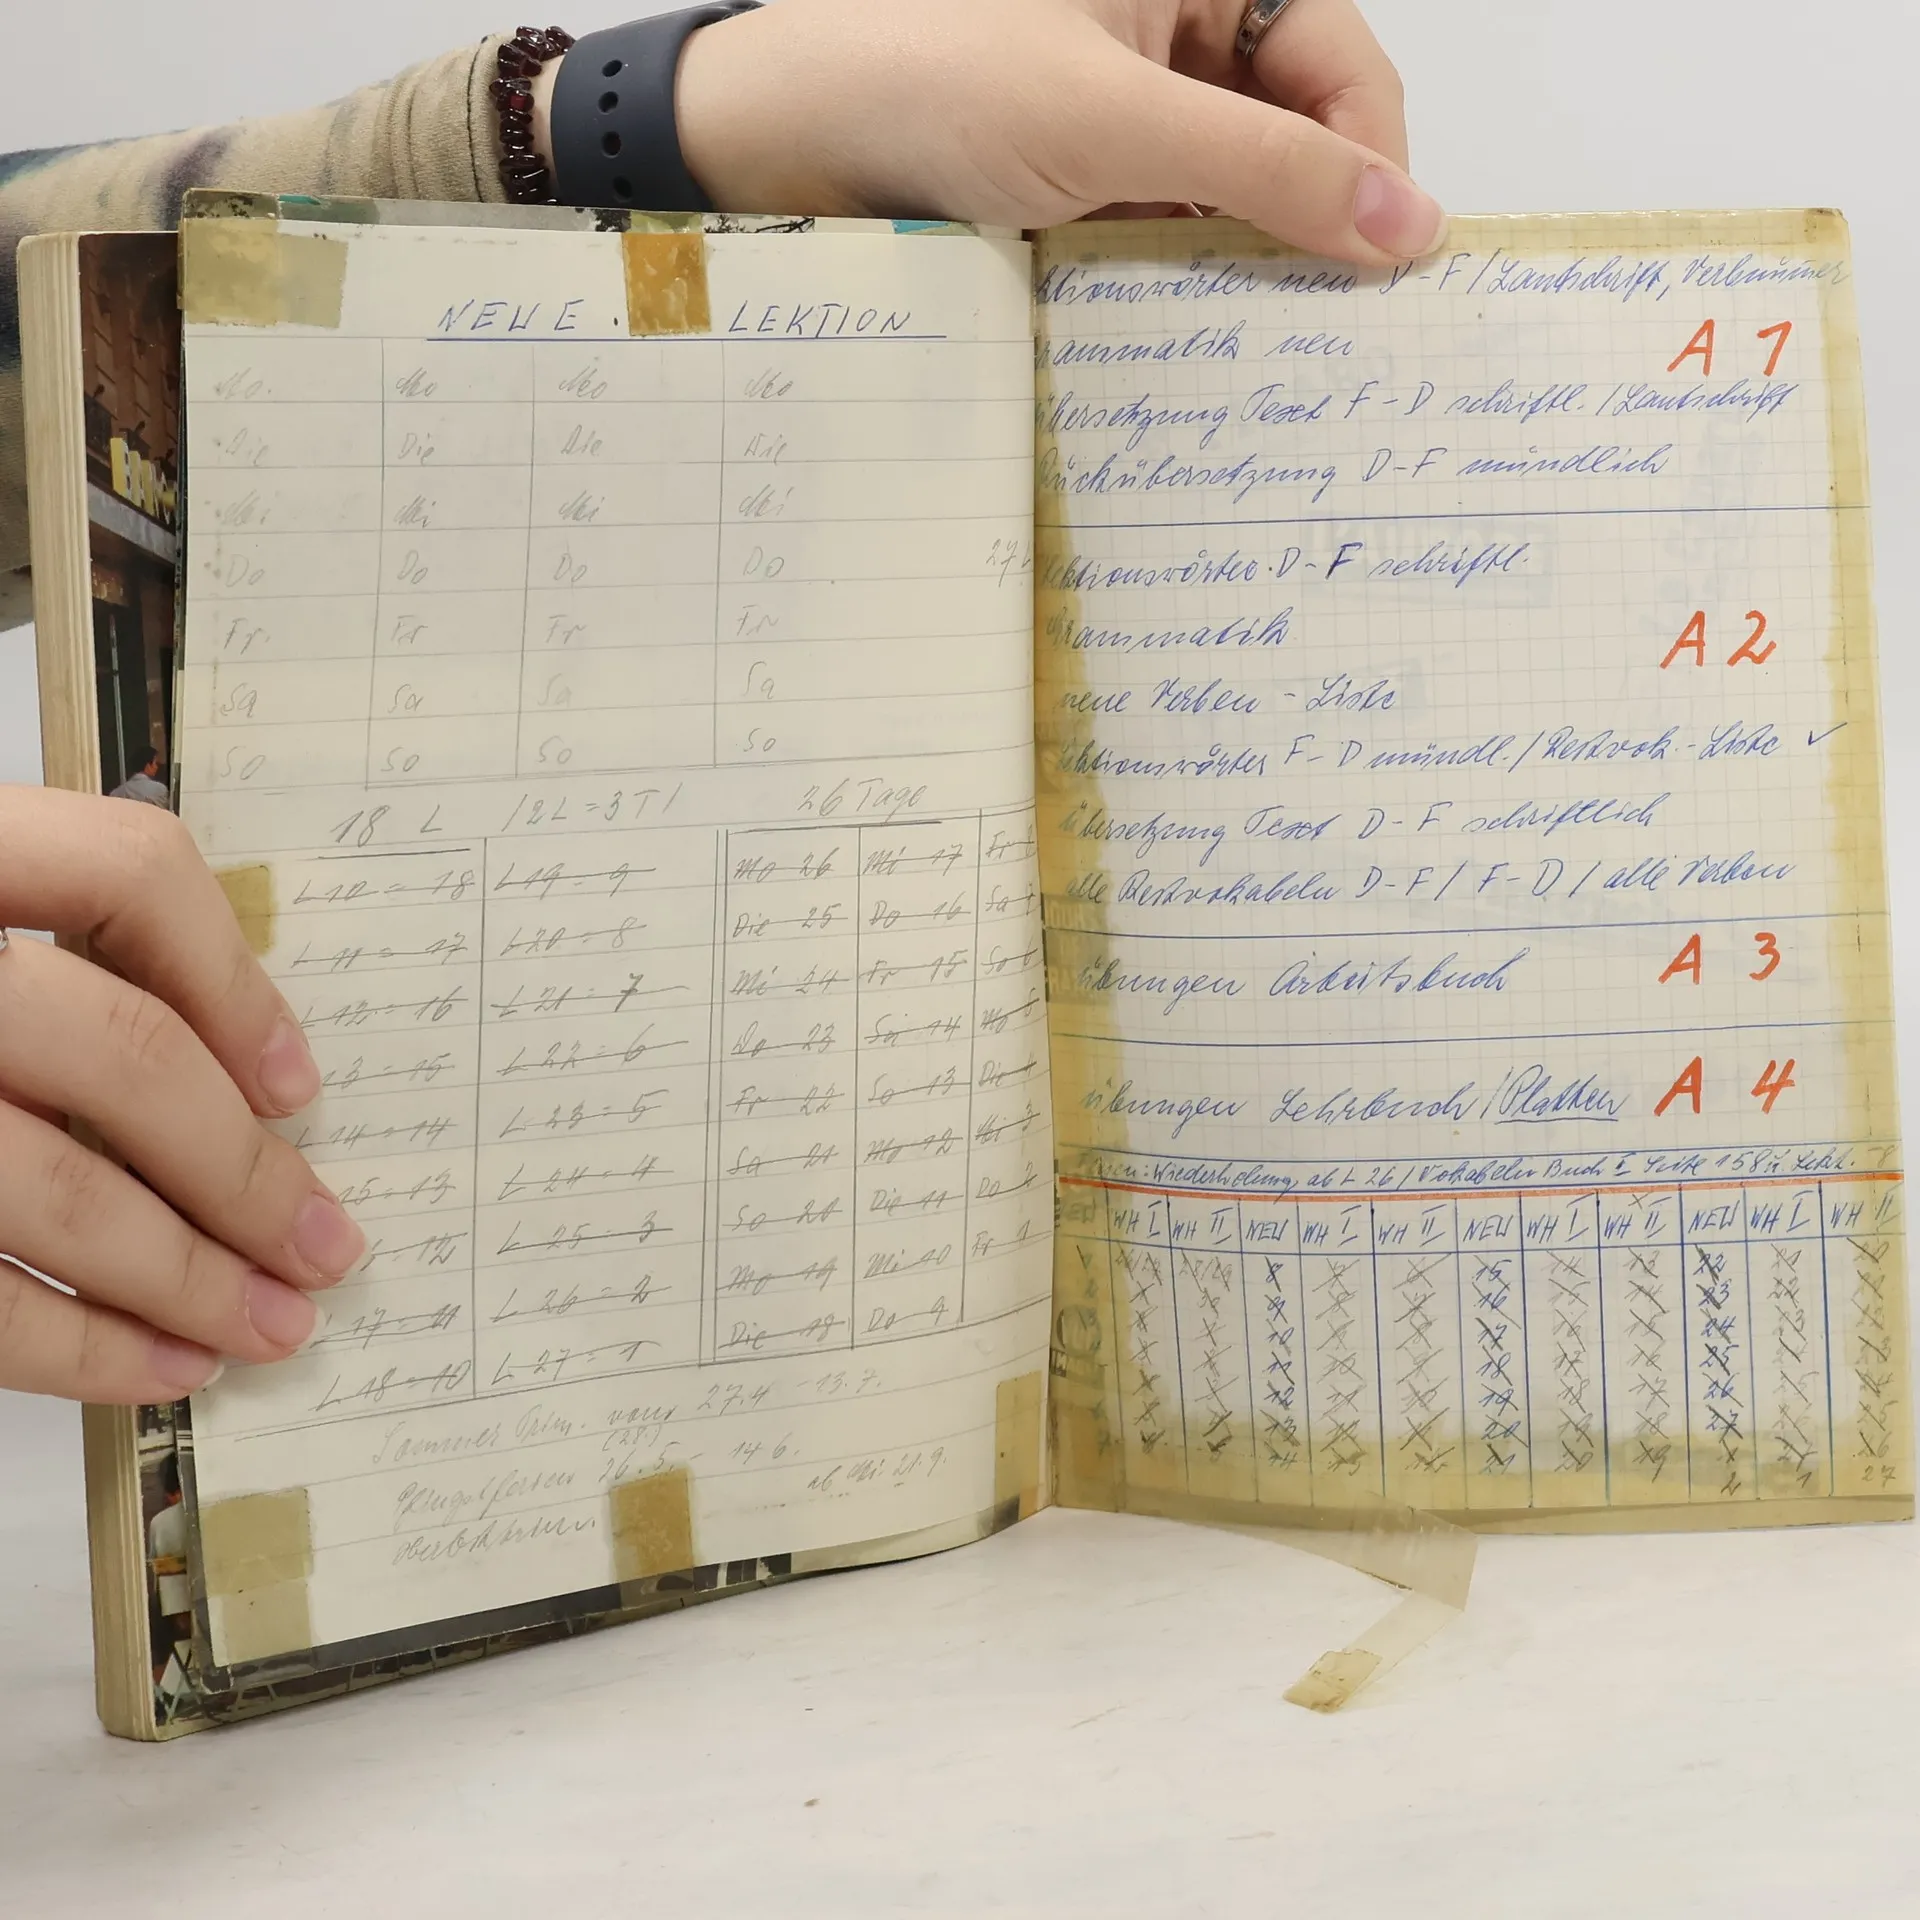 NEUE LEKTION
Mo. Mo Mo Mo
Die Die Die Die
Mi Mi Mi Mi
Do Do Do Do
Fr. Fr Fr Fr
Sa Sa Sa Sa
So So So So
18 L /2L=3T/ 26 Tage
L 10 = 18 L 19 = 9 Mo 26 Mi 17 Fr
L 11 = 17 L 20 = 8 Die 25 Do 16 Sa
L 12 = 16 L 21 = 7 Mi 24 Fr 15 So 6
13 = 15 L 22 = 6 Do 23 Sa 14 Mo 5
L 14 = 14 L 23 = 5 Fr 22 So 13 Die
15 = 13 L 24 = 4 Sa 21 Mo 12 Mi 3
= 12 L 25 = 3 So 20 Die 11 Do 2
17 = 11 L 26 = 2 Mo 19 Mi 10 Fr 1
L 18 = 10 L 27 = 1 Die 18 Do 9
Sommer Trim. vom 27.4 - 13.7.
(28.)
Pfingstferien 26.5. - 14 6.
ab Mi. 21.9.
ktionswörter neu D-F / Lautschrift, Verbnummer
rammatik neu A 1
übersetzung Text F-D schriftl. / Lautschrift
Rückübersetzung D-F mündlich
Lektionswörter D-F schriftl.
Grammatik A 2
neue Verben - Liste
Lektionswörter F-D mündl. / Restvok.-Liste ✓
übersetzung Text D-F schriftlich
alle Restvokabeln D-F / F-D / alle Verben
übungen Arbeitsbuch A 3
übungen Lehrbuch / Platten A 4
Wiederholung ab L 26 / Vokabeln Buch I Seite 158 u. Lekt.
WH I WH II NEU WH I WH II NEU WH I WH II NEU WH I WH II
26/27 28/29 8 15 14 13 22 21
9 8 16 15 14 23 22
10 17 16 15 24
11 10 18 17 16 25
12 11 10 19 18 17 26
13 20 19 18 27
14 13 21 20 19 1
2 1 27